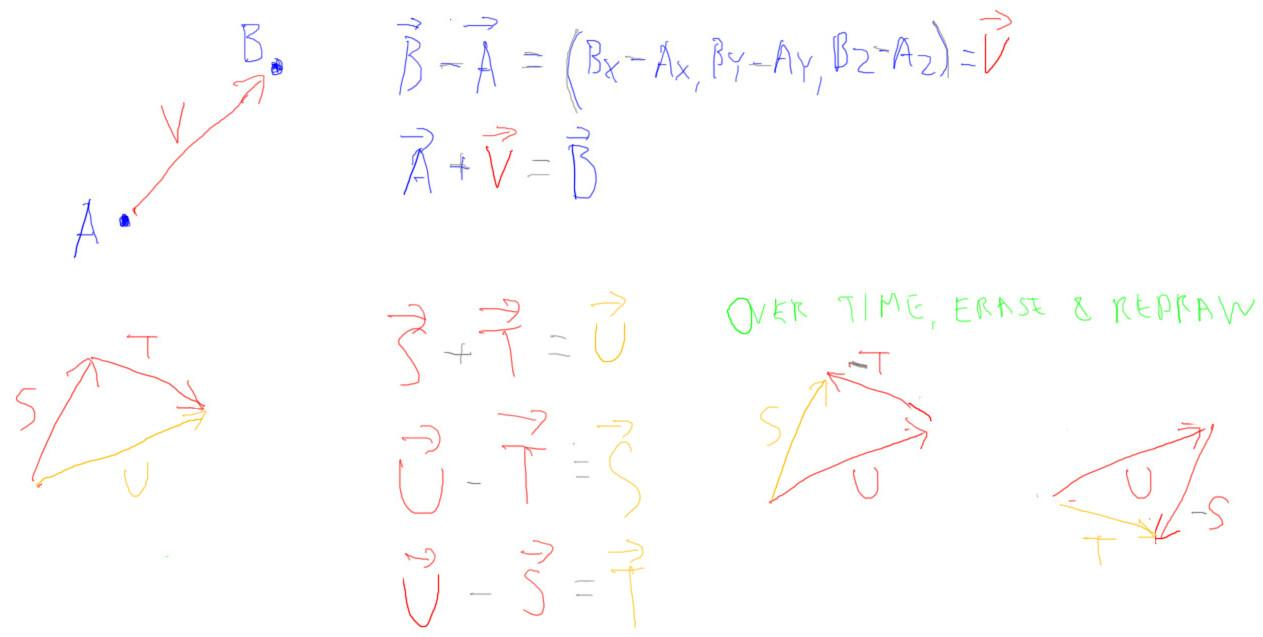 B
V
A
B⃗ - A⃗ = (Bx - Ax, By - Ay, Bz - Az) = V⃗
A⃗ + V⃗ = B⃗
T
S
U
S⃗ + T⃗ = U⃗
U⃗ - T⃗ = S⃗
U⃗ - S⃗ = T⃗
OVER TIME, ERASE & REDRAW
-T
S
U
U
-S
T